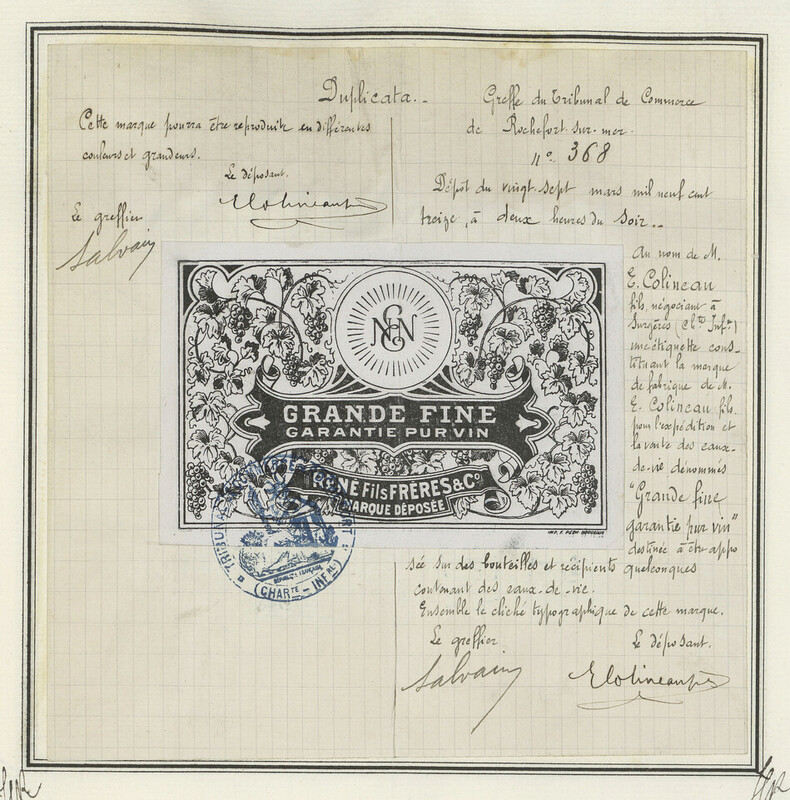 Duplicata.
Cette marque pourra être reproduite en différentes
couleurs et grandeurs.
Le déposant.
EColineaufils
Le greffier
Salvain
Greffe du Tribunal de Commerce
de Rochefort-sur-mer.
No. 368
Dépôt du vingt-sept mars mil neuf cent
treize, à deux heures du soir.
Au nom de M.
E. Colineau
fils, négociant à
Surgères (Chte Infre)
une étiquette cons-
tituant la marque
de fabrique de M.
E. Colineau fils
pour l'expédition et
la vente des eaux-
de-vie dénommés
"Grande fine
garantie pur vin"
destinée à être appo
sée sur des bouteilles et récipients quelconques
contenant des eaux-de-vie.
Ensemble le cliché typographique de cette marque.
Le greffier
Le déposant.
Salvain
EColineaufils
GRANDE FINE
GARANTIE PUR VIN
RENÉ Fils FRÈRES & Co
MARQUE DÉPOSÉE
TRIBUNAL
(CHARTE - INFRE)